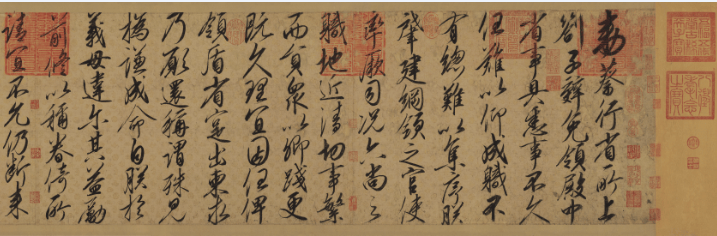 勅蔡行省所上
劄子辭免領殿中
省事具悉事不久
任難以仰成職不
有總難以集序朕
肇建綱領之官使
率厥司況六尚之
職地近清切事繁
而員衆以卿踐更
既久理宜因任俾
領盾省寔出柬求
乃願還稱謂殊見
撝謙成命自朕於
義毋違爾其益勵
前修以稱眷倚所
請宜不允仍斷來